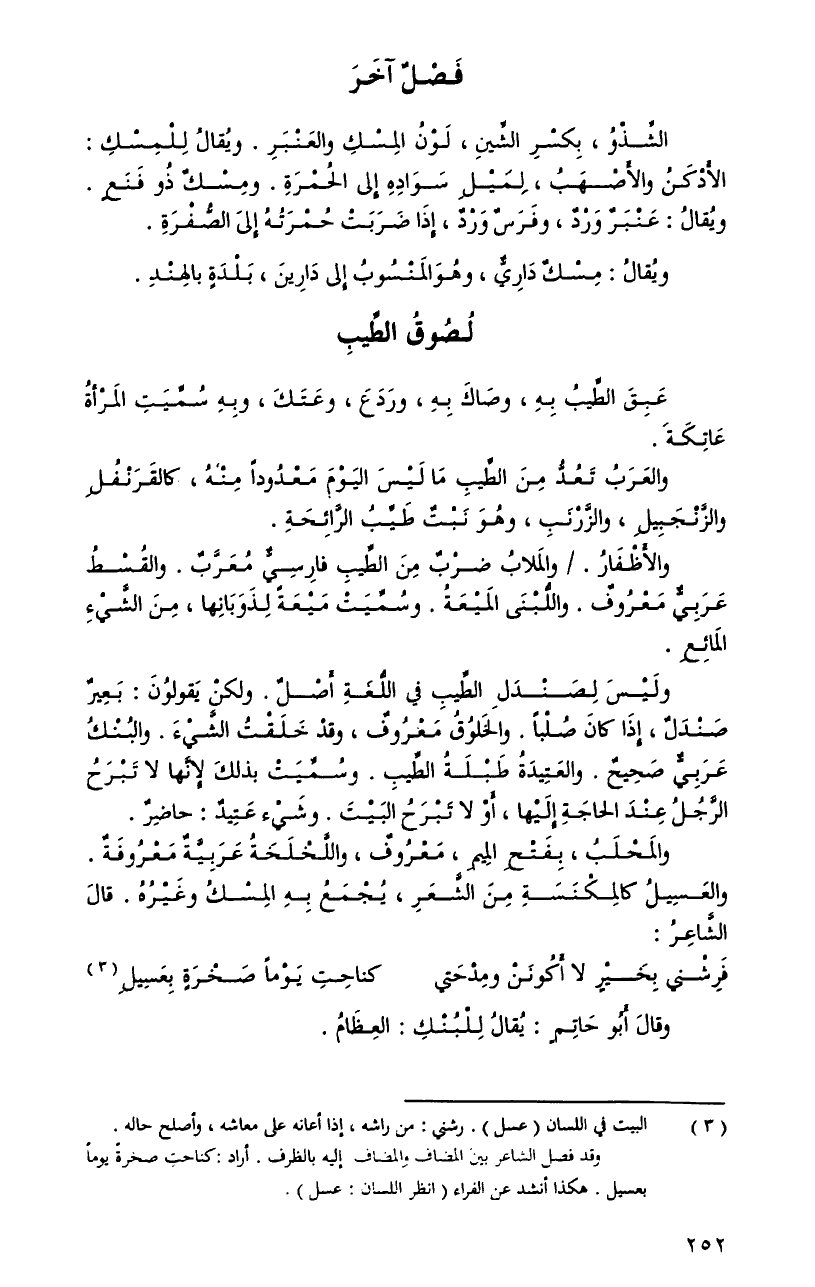 فَصْلٌ آخَرَ
الشَّذْوُ ، بِكَسْرِ الشِّينِ ، لَوْنُ المِسْكِ والعَنْبَرِ . ويُقالُ لِلْمِسْكِ :
الأَدْكَنُ والأَصْهَبُ ، لِمَيْلِ سَوَادِهِ إلى الحُمْرَةِ . ومِسْكٌ ذُو فَنَعٍ .
ويُقالُ : عَنْبَرٌ وَرْدٌ ، وفَرَسٌ وَرْدٌ ، إذَا ضَرَبَتْ حُمْرَتُهُ إلىَ الصُّفْرَةِ .
ويُقالُ : مِسْكٌ دَارِيٌّ ، وهُوَ المَنْسُوبُ إلى دَارِينَ ، بَلْدَةٍ بالهِنْدِ .
لُصُوقُ الطِّيبِ
عَبِقَ الطِّيبُ بِهِ ، وصَاكَ بِهِ ، ورَدَعَ ، وعَتَكَ ، وبِهِ سُمِّيَتِ المَرْأَةُ
عَاتِكَةَ .
والعَرَبُ تَعُدُّ مِنَ الطِّيبِ مَا لَيْسَ اليَوْمَ مَعْدُوداً مِنْهُ ، كالقَرَنْفُلِ
والزَّنْجَبِيلِ ، والزَّرْنَبِ ، وهُوَ نَبْتٌ طَيِّبُ الرَّائِحَةِ .
والأَظْفَارُ . / والمَلابُ ضَرْبٌ مِنَ الطِّيبِ فارِسِيٌّ مُعَرَّبٌ . والقُسْطُ
عَرَبِيٌّ مَعْرُوفٌ . واللُّبْنَى المَيْعَةُ . وسُمِّيَتْ مَيْعَةً لِذَوَبَانِها ، مِنَ الشَّيْءِ
المَائِعِ .
ولَيْسَ لِصَنْدَلِ الطِّيبِ في اللُّغَةِ أَصْلٌ . ولكنْ يَقولُونَ : بَعِيرٌ
صَنْدَلٌ ، إذَا كانَ صُلْباً . والخَلوُقُ مَعْرُوفٌ ، وقدْ خَلَقْتُ الشَّيْءَ . والبُنْكُ
عَرَبِيٌّ صَحِيحٌ . والعَتِيدَةُ طَبْلَةُ الطِّيبِ . وسُمِّيَتْ بذلكَ لِأَنَّها لا تَبْرَحُ
الرَّجُلُ عِنْدَ الحاجَةِ إلَيْها ، أَوْ لا تَبْرَحُ البَيْتَ . وشَيْءٌ عَتِيدٌ : حاضِرٌ .
والمَحْلَبُ ، بِفَتْحِ المِيمِ ، مَعْرُوفٌ ، واللَّخْلَخَةُ عَرَبِيَّةٌ مَعْرُوفَةٌ .
والعَسِيلُ كالمِكْنَسَةِ مِنَ الشَّعَرِ ، يُجْمَعُ بِهِ المِسْكُ وغَيْرُهُ . قالَ
الشَّاعِرُ :
فَرِشْني بِخَيْرٍ لا أَكُونَنْ ومِدْحَتي كناحِتِ يَوْماً صَخْرَةٍ بِعَسِيلِ (٣)
وقالَ أَبُو حَاتِمٍ : يُقالُ لِلْبُنْكِ : العِظَامُ .
( ٣ ) البيت في اللسان ( عسل ) . رشني : من راشه ، إذا أعانه على معاشه ، وأصلح حاله .
وقد فصل الشاعر بين المضاف والمضاف إليه بالظرف . أراد : كناحتِ صخرةٍ يوماً
بعسيل . هكذا أنشد عن الفراء ( انظر اللسان : عسل ) .
٢٥٢